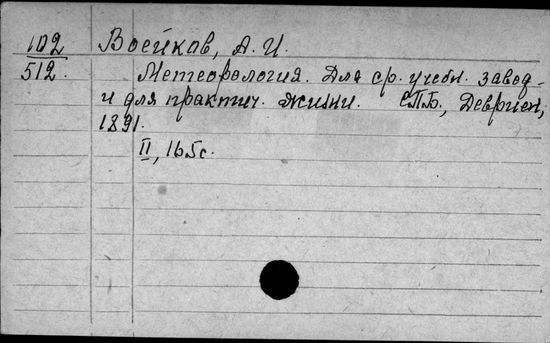 102
512.
Воейков, А. И.
Метеорология. Для ср. учебн. завод-
и для практич. жизни. СПБ., Девриен,
1891.
II, 165с.